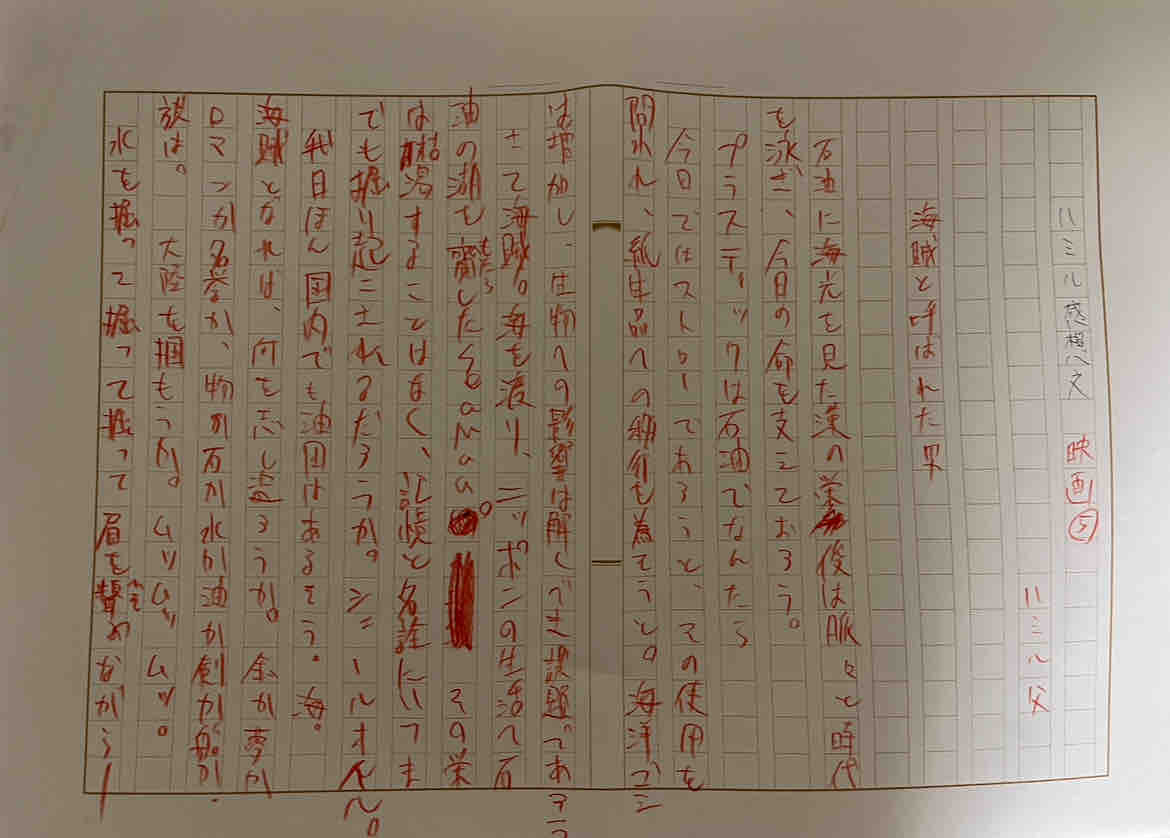 ハミル感想文 映画⑤
ハミル父
海賊と呼ばれた男
石油に海光を見た漢の栄 後は脈々と時代
を泳ぎ、今日の命も支えておろう。
プラスティックは石油でなんたら
今日ではストローであろうと、その使用を
問われ、紙生品への移行も為そうと。海洋ゴミ
は増加し、生物への影響は解くべき課題であろう
さて海賊。海を渡り、ニッポンの生活へ石
油の湖を齎した
もたら
その栄
は枯渇することはなく、記憶と名誰にいつま
でも掘り起こされるだろうか。シェールオイル。
我日ほん国内でも油田はあるそう。海。
海賊となれば、何を志し造ろうか。金か夢か
ロマンか名誉か、物か石か水か油か剣か船か.
旅は。 大陸を掴もうか。ムッムッ ムッ。
水を掘って掘って掘って 眉を顰めながらー
ひそ